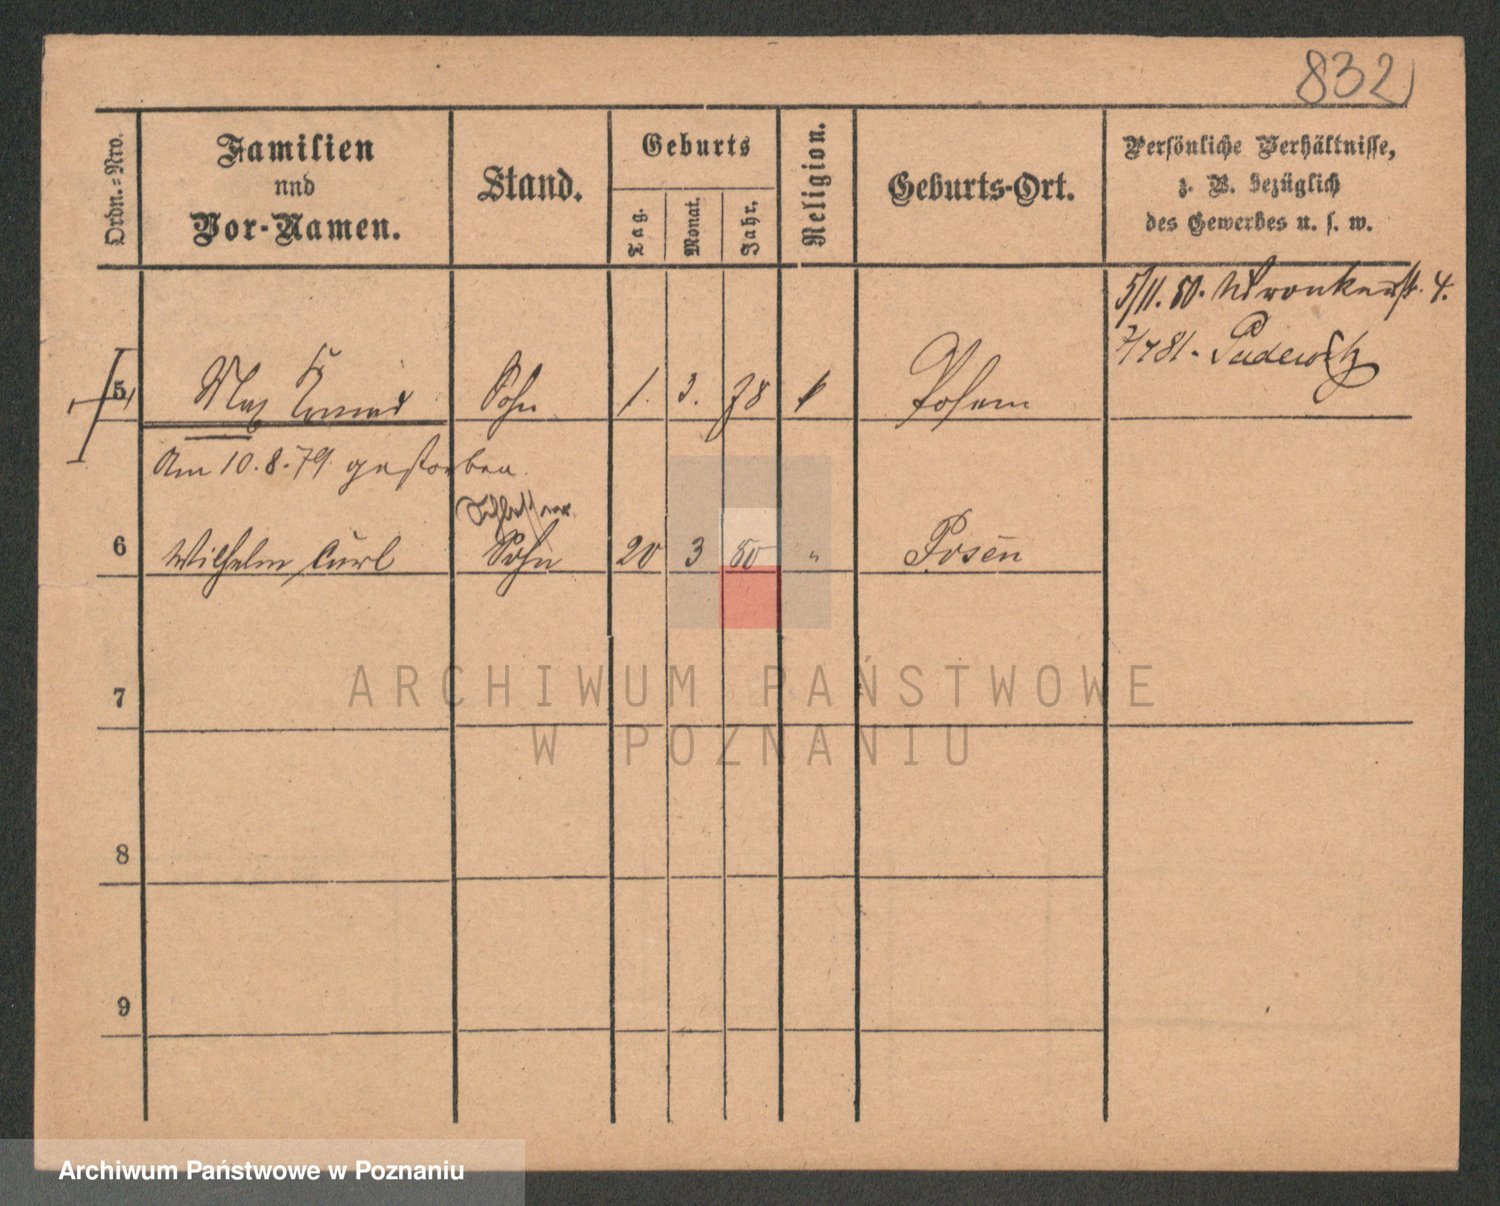 832
Ordn.-Nro.
Familien
und
Vor-Namen.
Stand.
Geburts
Tag.
Monat.
Jahr.
Religion.
Geburts-Ort.
Persönliche Verhältnisse,
z. B. bezüglich
des Gewerbes u. s. w.
5/11. 80. Wronkerstr. 4.
Pudewitz
5 Max Konrad Sohn 1. 3. 78 Posen
Am 10.8.79 gestorben
6 Wilhelm Curl Sohn 20 3 80 " Posen
7
8
9
ARCHIWUM PAŃSTWOWE
W POZNANIU
Archiwum Państwowe w Poznaniu